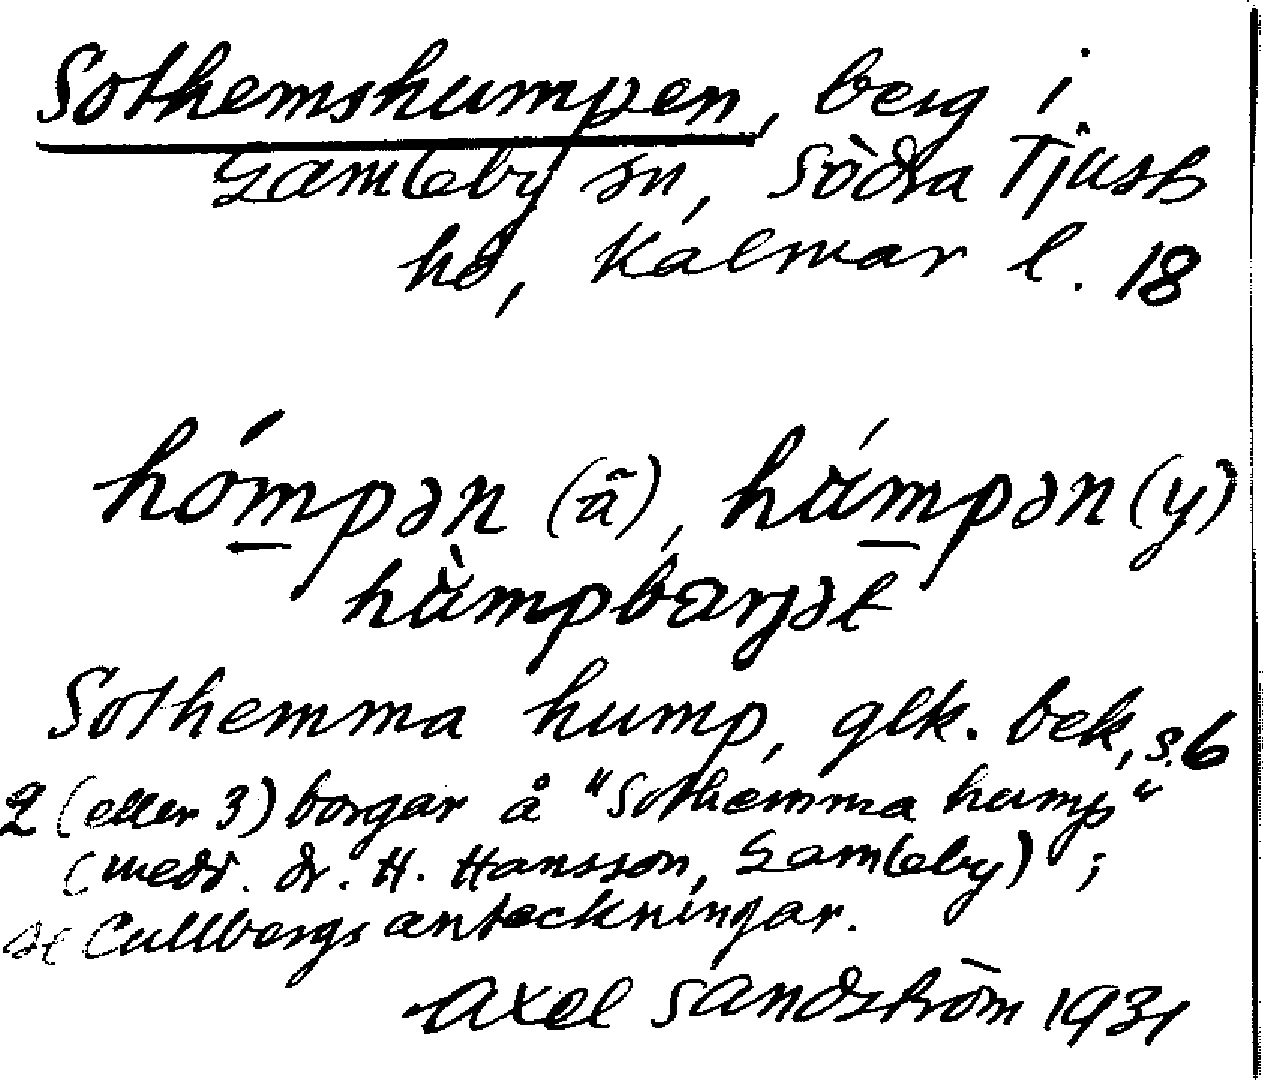 Sothemshumpen, berg i
Gamleby sn, Södra Tjust
hd, Kalmar l. 18
hómpən (ä), húmpən (y)
hùmpbærjət
Sothemma hump, glk. bek, s. 6
2 (eller 3) borgar å "Sothemma hump"
(medd. dr. H. Hansson, Gamleby);
se Cullbergs anteckningar.
Axel Sandström 1931